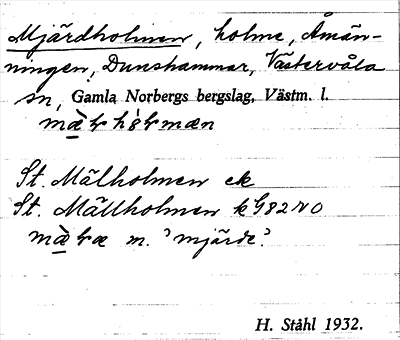 Mjärdholmen, holme, Åmän-
ningen, Dunshammar, Västervåla
sn, Gamla Norbergs bergslag, Västm. l.
St. Mälholmen ek
St. Mällholmen k G82NO
m. 'mjärde'
H. Ståhl 1932.